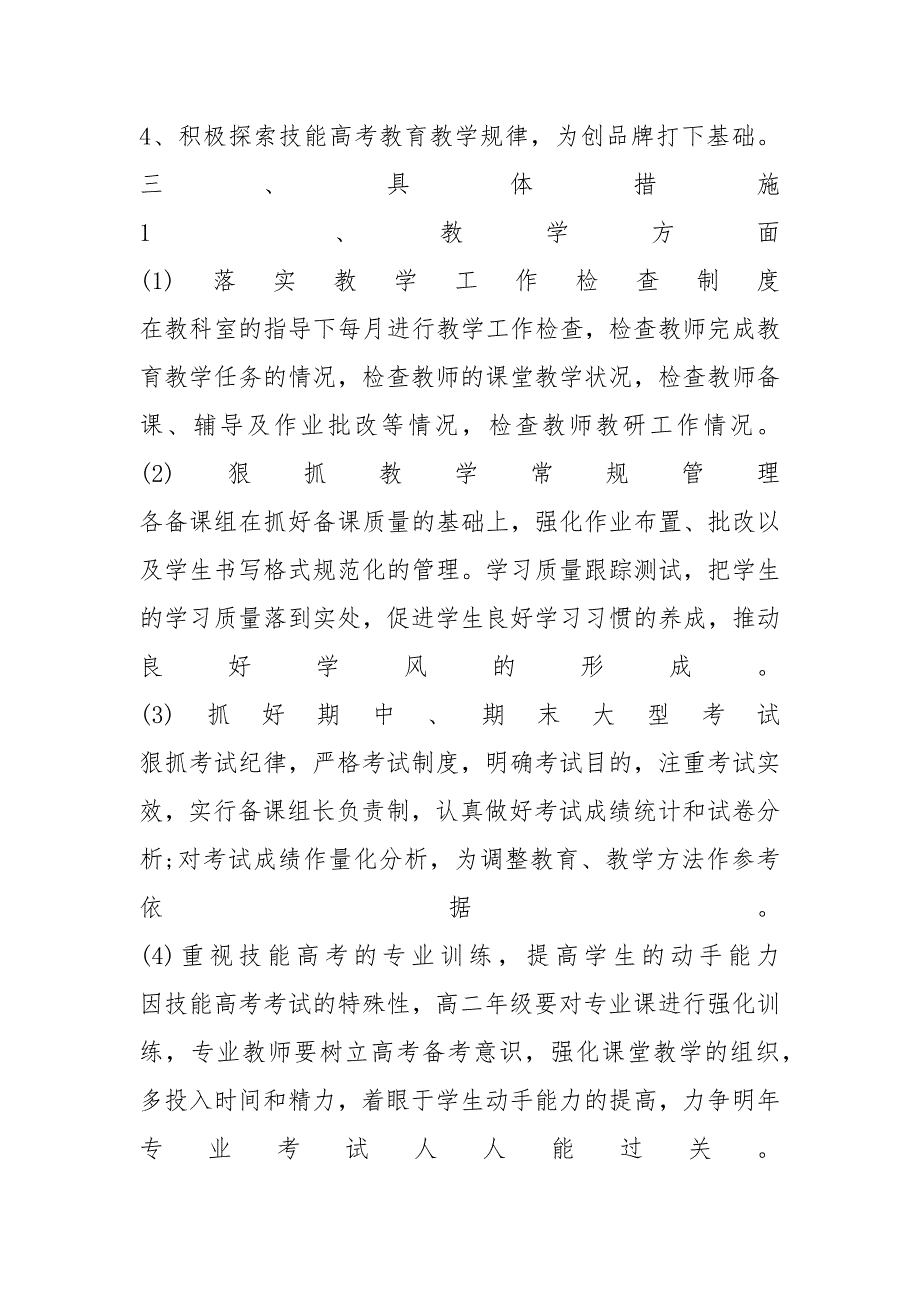 4、积极探索技能高考教育教学规律，为创品牌打下基础。
三、具体措施
1、教学方面
(1)落实教学工作检查制度
在教科室的指导下每月进行教学工作检查，检查教师完成教
育教学任务的情况，检查教师的课堂教学状况，检查教师备
课、辅导及作业批改等情况，检查教师教研工作情况。
(2)狠抓教学常规管理
各备课组在抓好备课质量的基础上，强化作业布置、批改以
及学生书写格式规范化的管理。学习质量跟踪测试，把学生
的学习质量落到实处，促进学生良好学习习惯的养成，推动
良好学风的形成。
(3)抓好期中、期末大型考试
狠抓考试纪律，严格考试制度，明确考试目的，注重考试实
效，实行备课组长负责制，认真做好考试成绩统计和试卷分
析;对考试成绩作量化分析，为调整教育、教学方法作参考
依据。
(4)重视技能高考的专业训练，提高学生的动手能力
因技能高考考试的特殊性，高二年级要对专业课进行强化训
练，专业教师要树立高考备考意识，强化课堂教学的组织，
多投入时间和精力，着眼于学生动手能力的提高，力争明年
专业考试人人能过关。